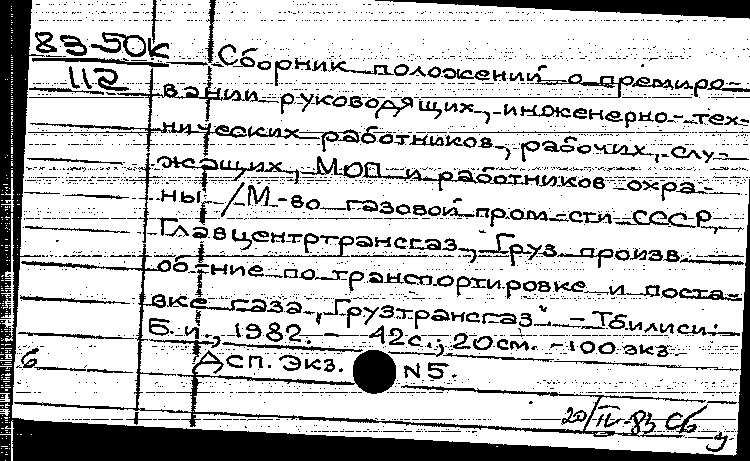 83-50к
112
Сборник положений о премиро-
вании руководящих, инженерно-тех-
нических работников, рабочих, слу-
жащих, МОП и работников охра-
ны / М-во газовой пром-сти СССР,
Главцентртрансгаз, Груз. произв.
об-ние по транспортировке и поста-
вке газа „Грузтрансгаз". - Тбилиси:
Б. и., 1982. - 42 с.; 20 см. - 100 экз.
Дсп. Экз. N 5.
б
20/IV-83 Сб
у